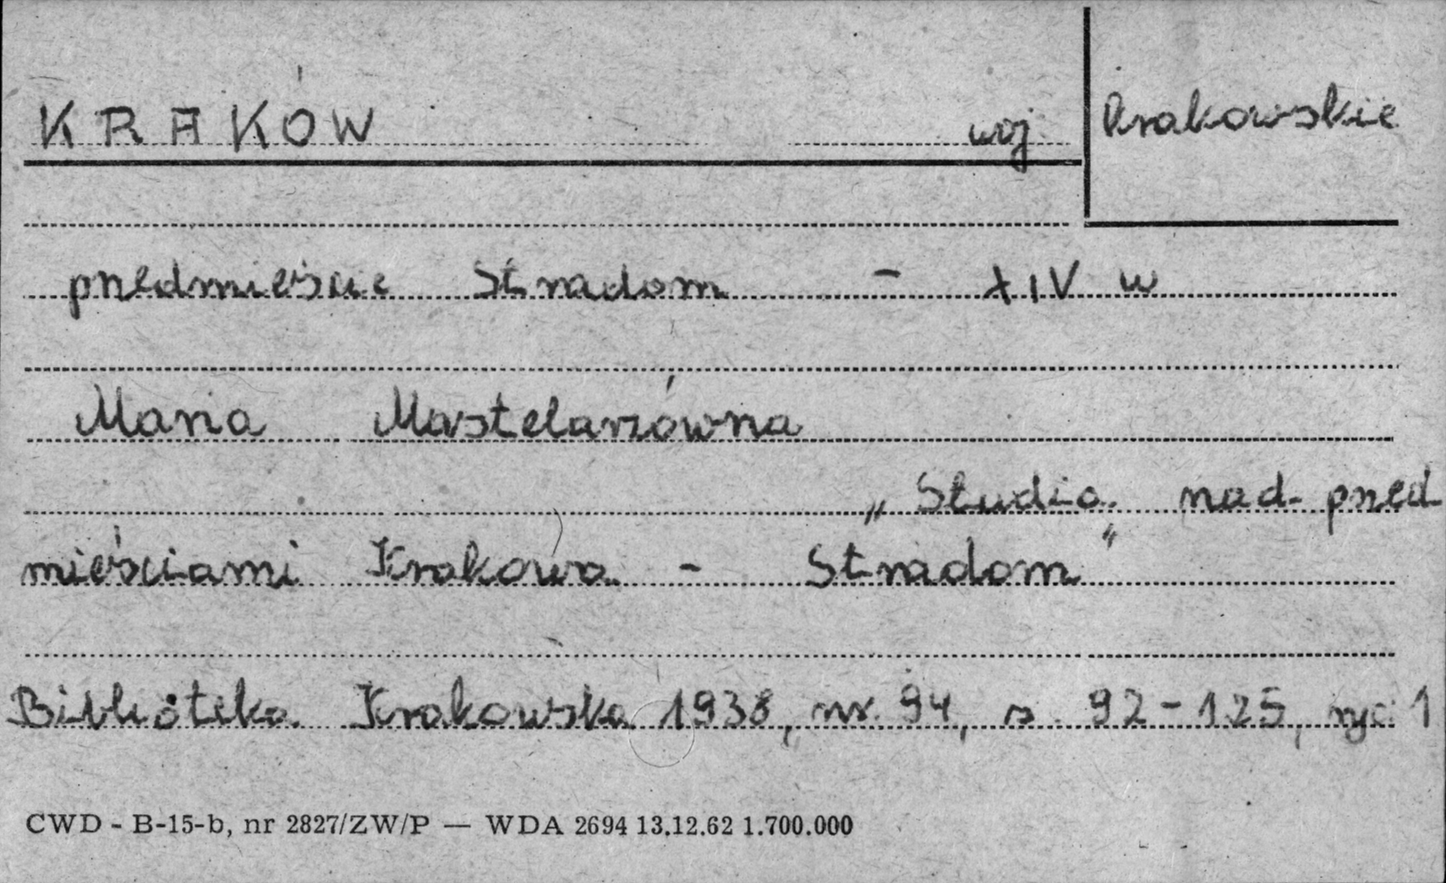 KRAKÓW woj. Krakowskie
przedmieście Stradom - XIV w
Maria Mastelarzówna
„Studia nad przed
mieściami Krakowa - Stradom"
Biblioteka Krakowska 1938, nr. 94, s. 92-125, ryc. 1
CWD - B-15-b, nr 2827/ZW/P — WDA 2694 13.12.62 1.700.000